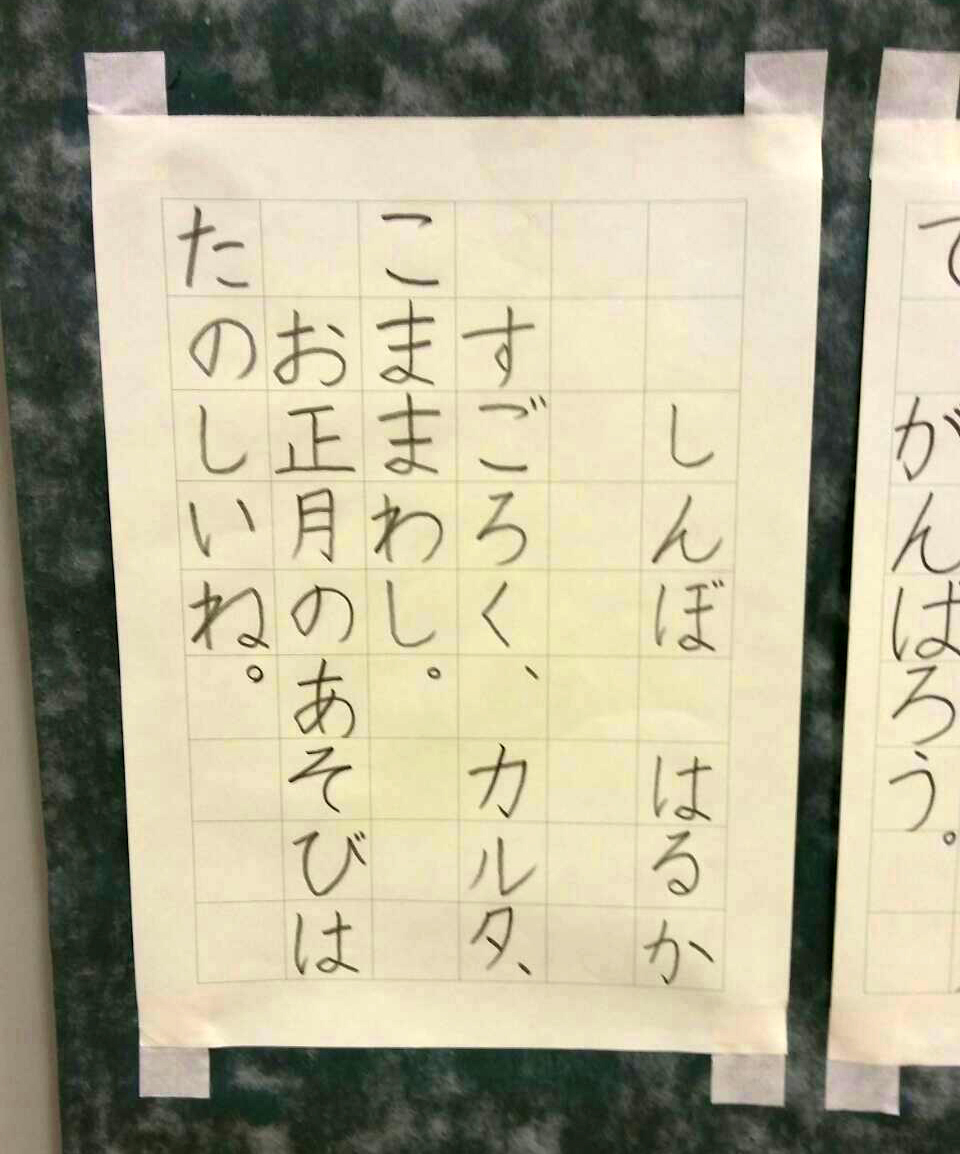 しんぼ はるか
すごろく、カルタ、
こままわし。
お正月のあそびは
たのしいね。
がんばろう。